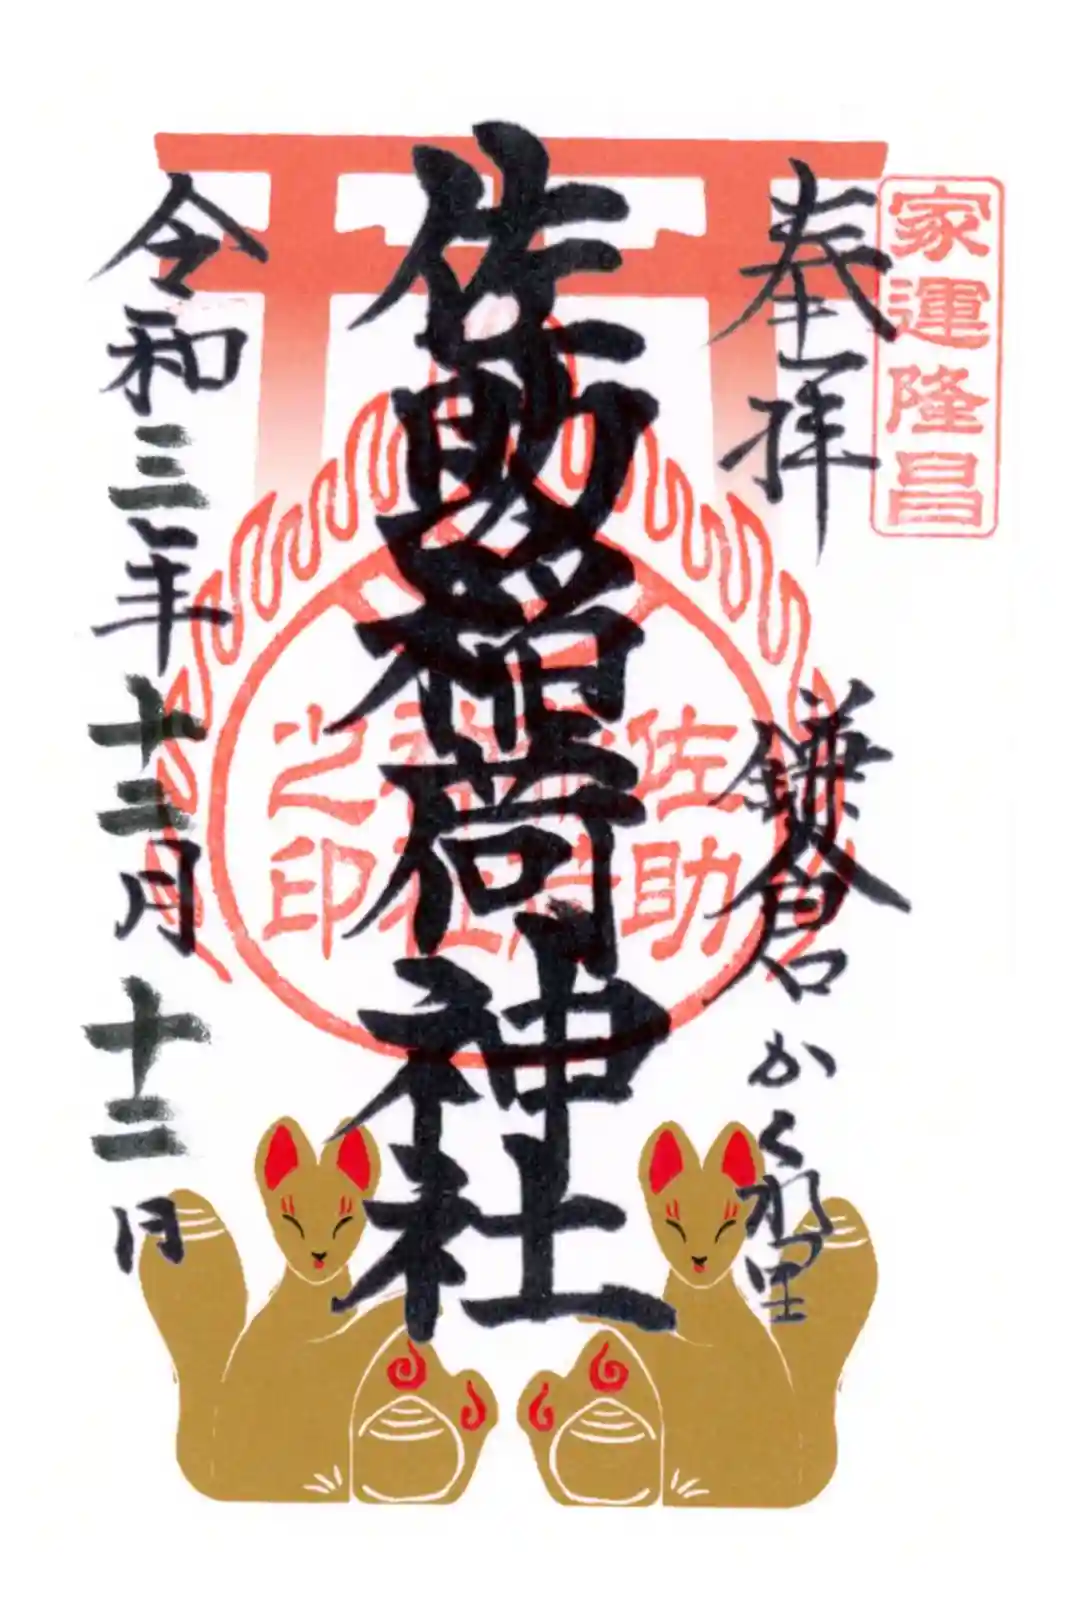 家運隆昌
奉拝
鎌倉かくれ里
佐助稲荷神社
佐助
稲荷
神社
之印
令和三年十二月十二日